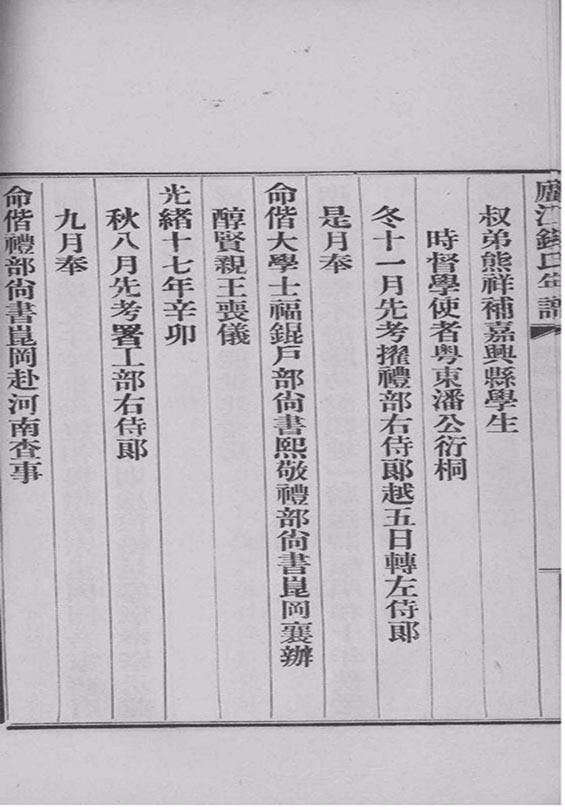 廬江錢氏年譜
叔弟熊祥補嘉興縣學生
時督學使者粤東潘公衍桐
冬十一月先考擢禮部右侍郞越五日轉左侍郞
是月奉
命偕大學士福錕戸部尙書熙敬禮部尙書崑岡襄辦
醇賢親王喪儀
光緒十七年辛卯
秋八月先考署工部右侍郞
九月奉
命偕禮部尙書崑岡赴河南查事